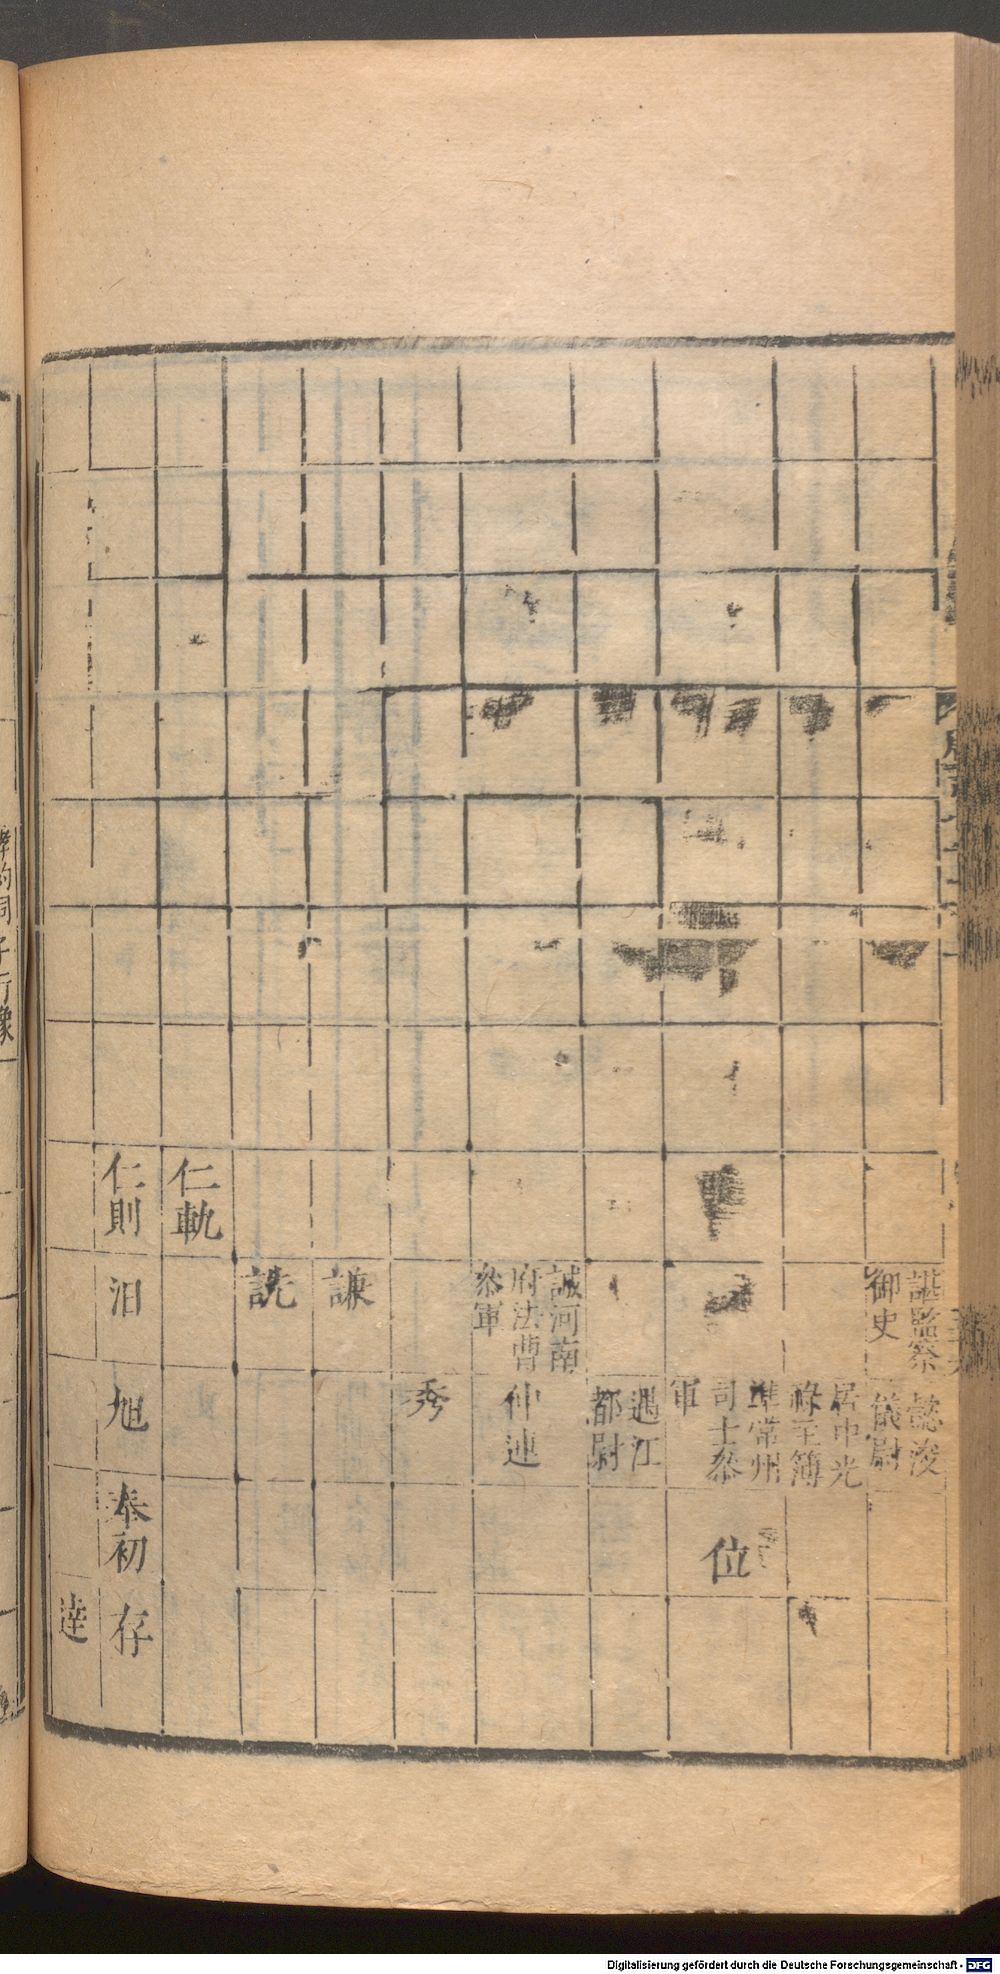 諶監察
御史
懿浚
儀尉
居中光
祿主簿
準常州
司士叅
軍
位
遇江
都尉
誠河南
府法曹
叅軍
仲連
秀
謙
詵
仁軌
仁則
汨
旭
奉初
存
達
Digitalisierung gefördert durch die Deutsche Forschungsgemeinschaft - DFG